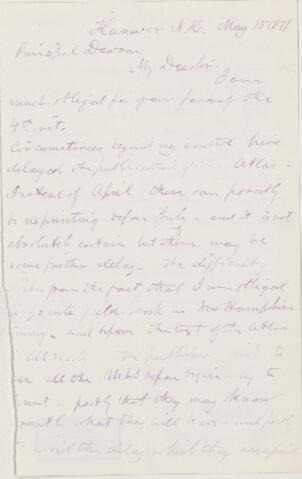 Hanover N.H. May 15 1871
Principal Dawson,
My Dear Sir:
I am
much obliged for your favor of the
4th inst.
Circumstances beyond my control have
delayed the publication of the Atlas.
Instead of April there can possibly
be no printing before July - and it is not
absolutely certain but there may be
some further delay. The difficulty
from the fact that I was obliged
go into field work in New Hampshire
and before the text of the Atlas
all ready. The publishers
all the MSS before beginning to
- partly that they may know
what they will have - and partly
avoid the delay which they